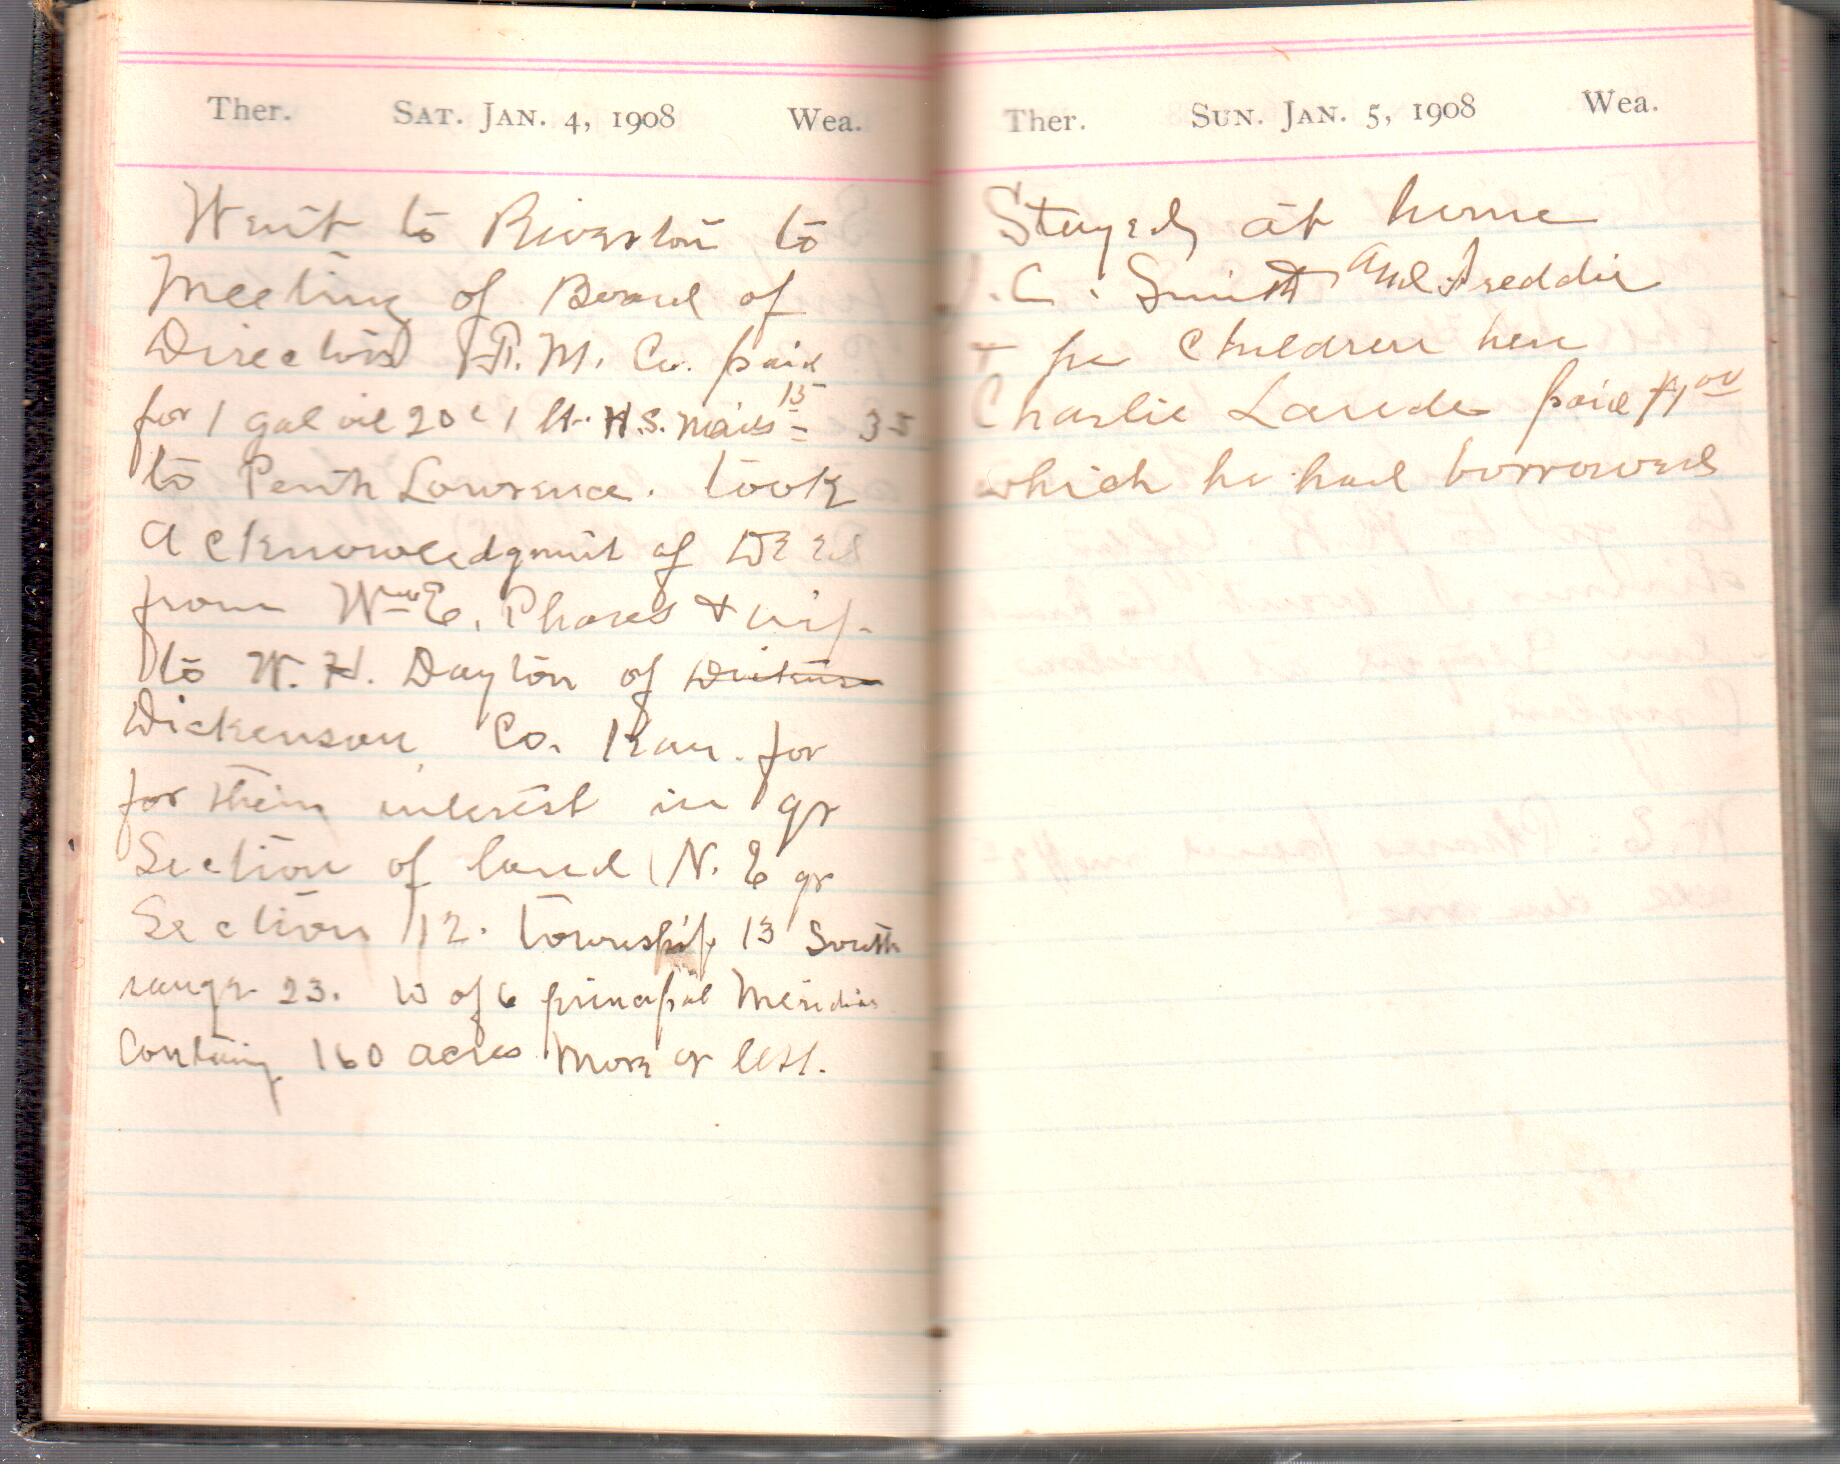 Ther. SAT. JAN. 4, 1908 Wea.
Went to Riverton to
Meeting of Board of
Directors R. M. Co. paid
for 1 gal oil 20c 1 H.S. nails 15 35
to Perth Lowrence. took
acknowledgment of Deed
from Wm E. Phares & wife
to W. H. Dayton of
Dickenson Co. Kan. for
for their interest in qr
Section of land (N. E qr
Section 12. township 13 South
range 23. W of 6 principal Meridian
Containing 160 acres more or less.
Ther. SUN. JAN. 5, 1908 Wea.
Stayed at home
C. Smith and Freddie
children here
Charlie paid $1.00
which he had borrowed